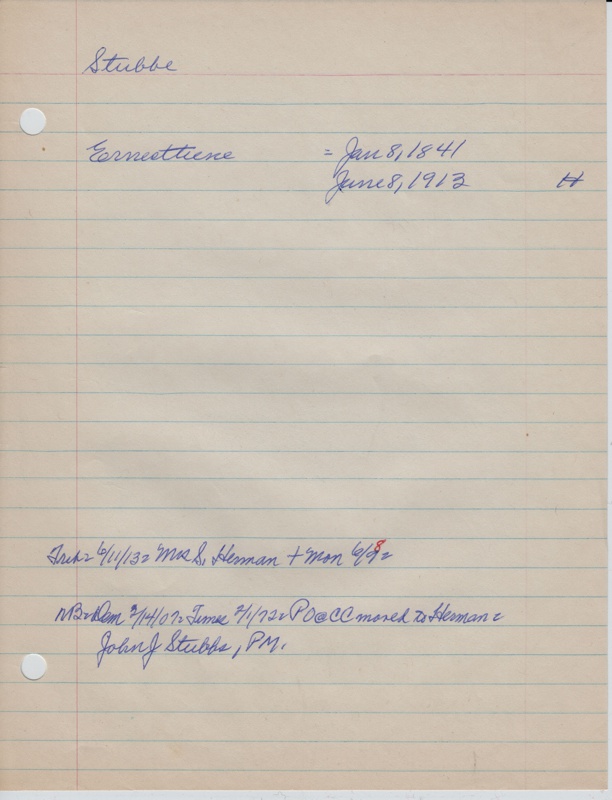 Stubbe
Ernesttiene = Jan 8, 1841
June 8, 1913 H
Trib = 6/11/13 = Mrs S. Herman + Mon 6/8 =
NB = Dem 2/14/07 = Times 2/1/72 = PO @ CC moved to Herman =
John J Stubbs, PM.